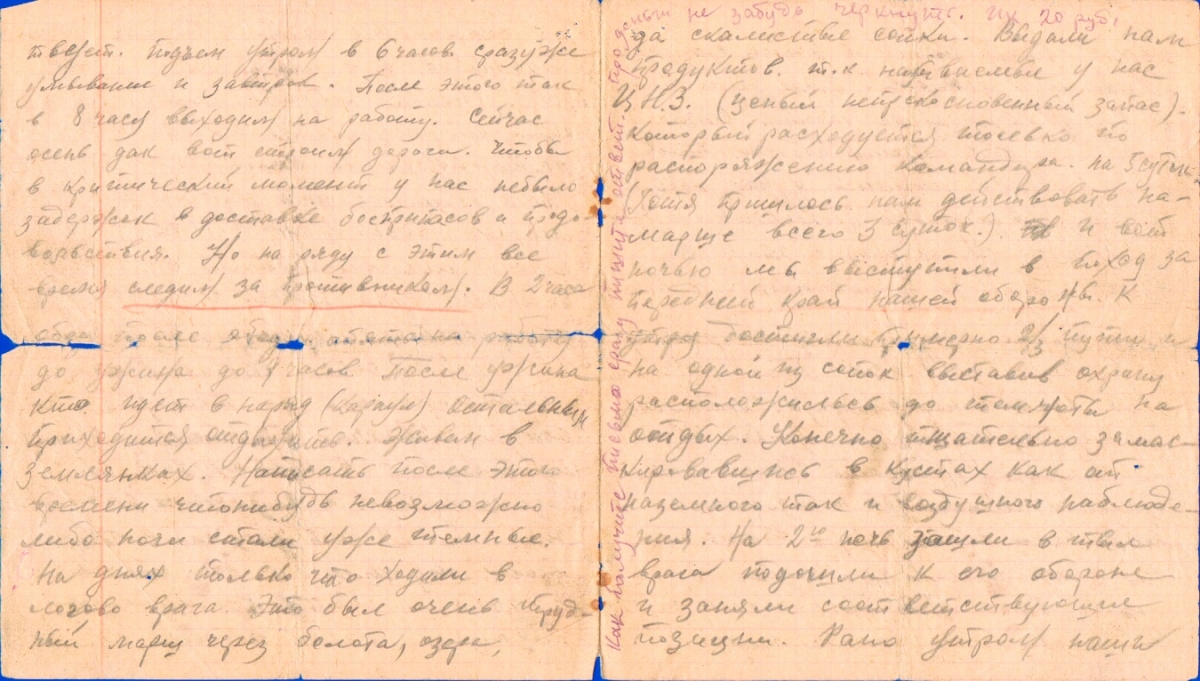 твует. Подъем утром в 6 часов сразуже
умывание и завтрок. После этого так
в 8 часа выходим на работу. Сейчас
осень дак вот строим дороги. Чтобы
в критический момент у нас небыло
задержок в доставке боеприпасов и продо
вольствия. Но на ряду с этим все
время следим за противником. В 2 часа
после на работу
до ужина до часов После ужина
кто идет в наряд (караул) остальным
приходится отдыхать. Живем в
землянках. Написать после этого
времени чтонибудь невозможно
либо ночи стали уже темные.
На днях только что ходили в
логово врага. Это был очень труд-
ный марш через болота, озера,
деньги не забудь черкнуть. их 20 руб.
Как получите письмо сразу пишите ответ. про
да скалистые сопки. Выдали нам
продуктов. т.к называемый у нас
Ц.Н.З. (ценый неприкосновенный запас).
который расходуется только по
распоряжению командира. на 5 суток
(Хотя пришлось нам действовать на-
марше всего 3 суток.) И вот
ночью мы выступили в поход за
передний край нашей обороны. К
утру достигли примерно 2/3 пути и
на одной из сопок выставив охрану
расположились до темноты на
отдых. Конечно тщательно замас-
кировавшись в кустах как от
наземного так и воздушного наблюде-
ния. На 2ую ночь зашли в тыл
врага подошли к его обороне
и заняли соответствующие
позиции. Рано утром наши